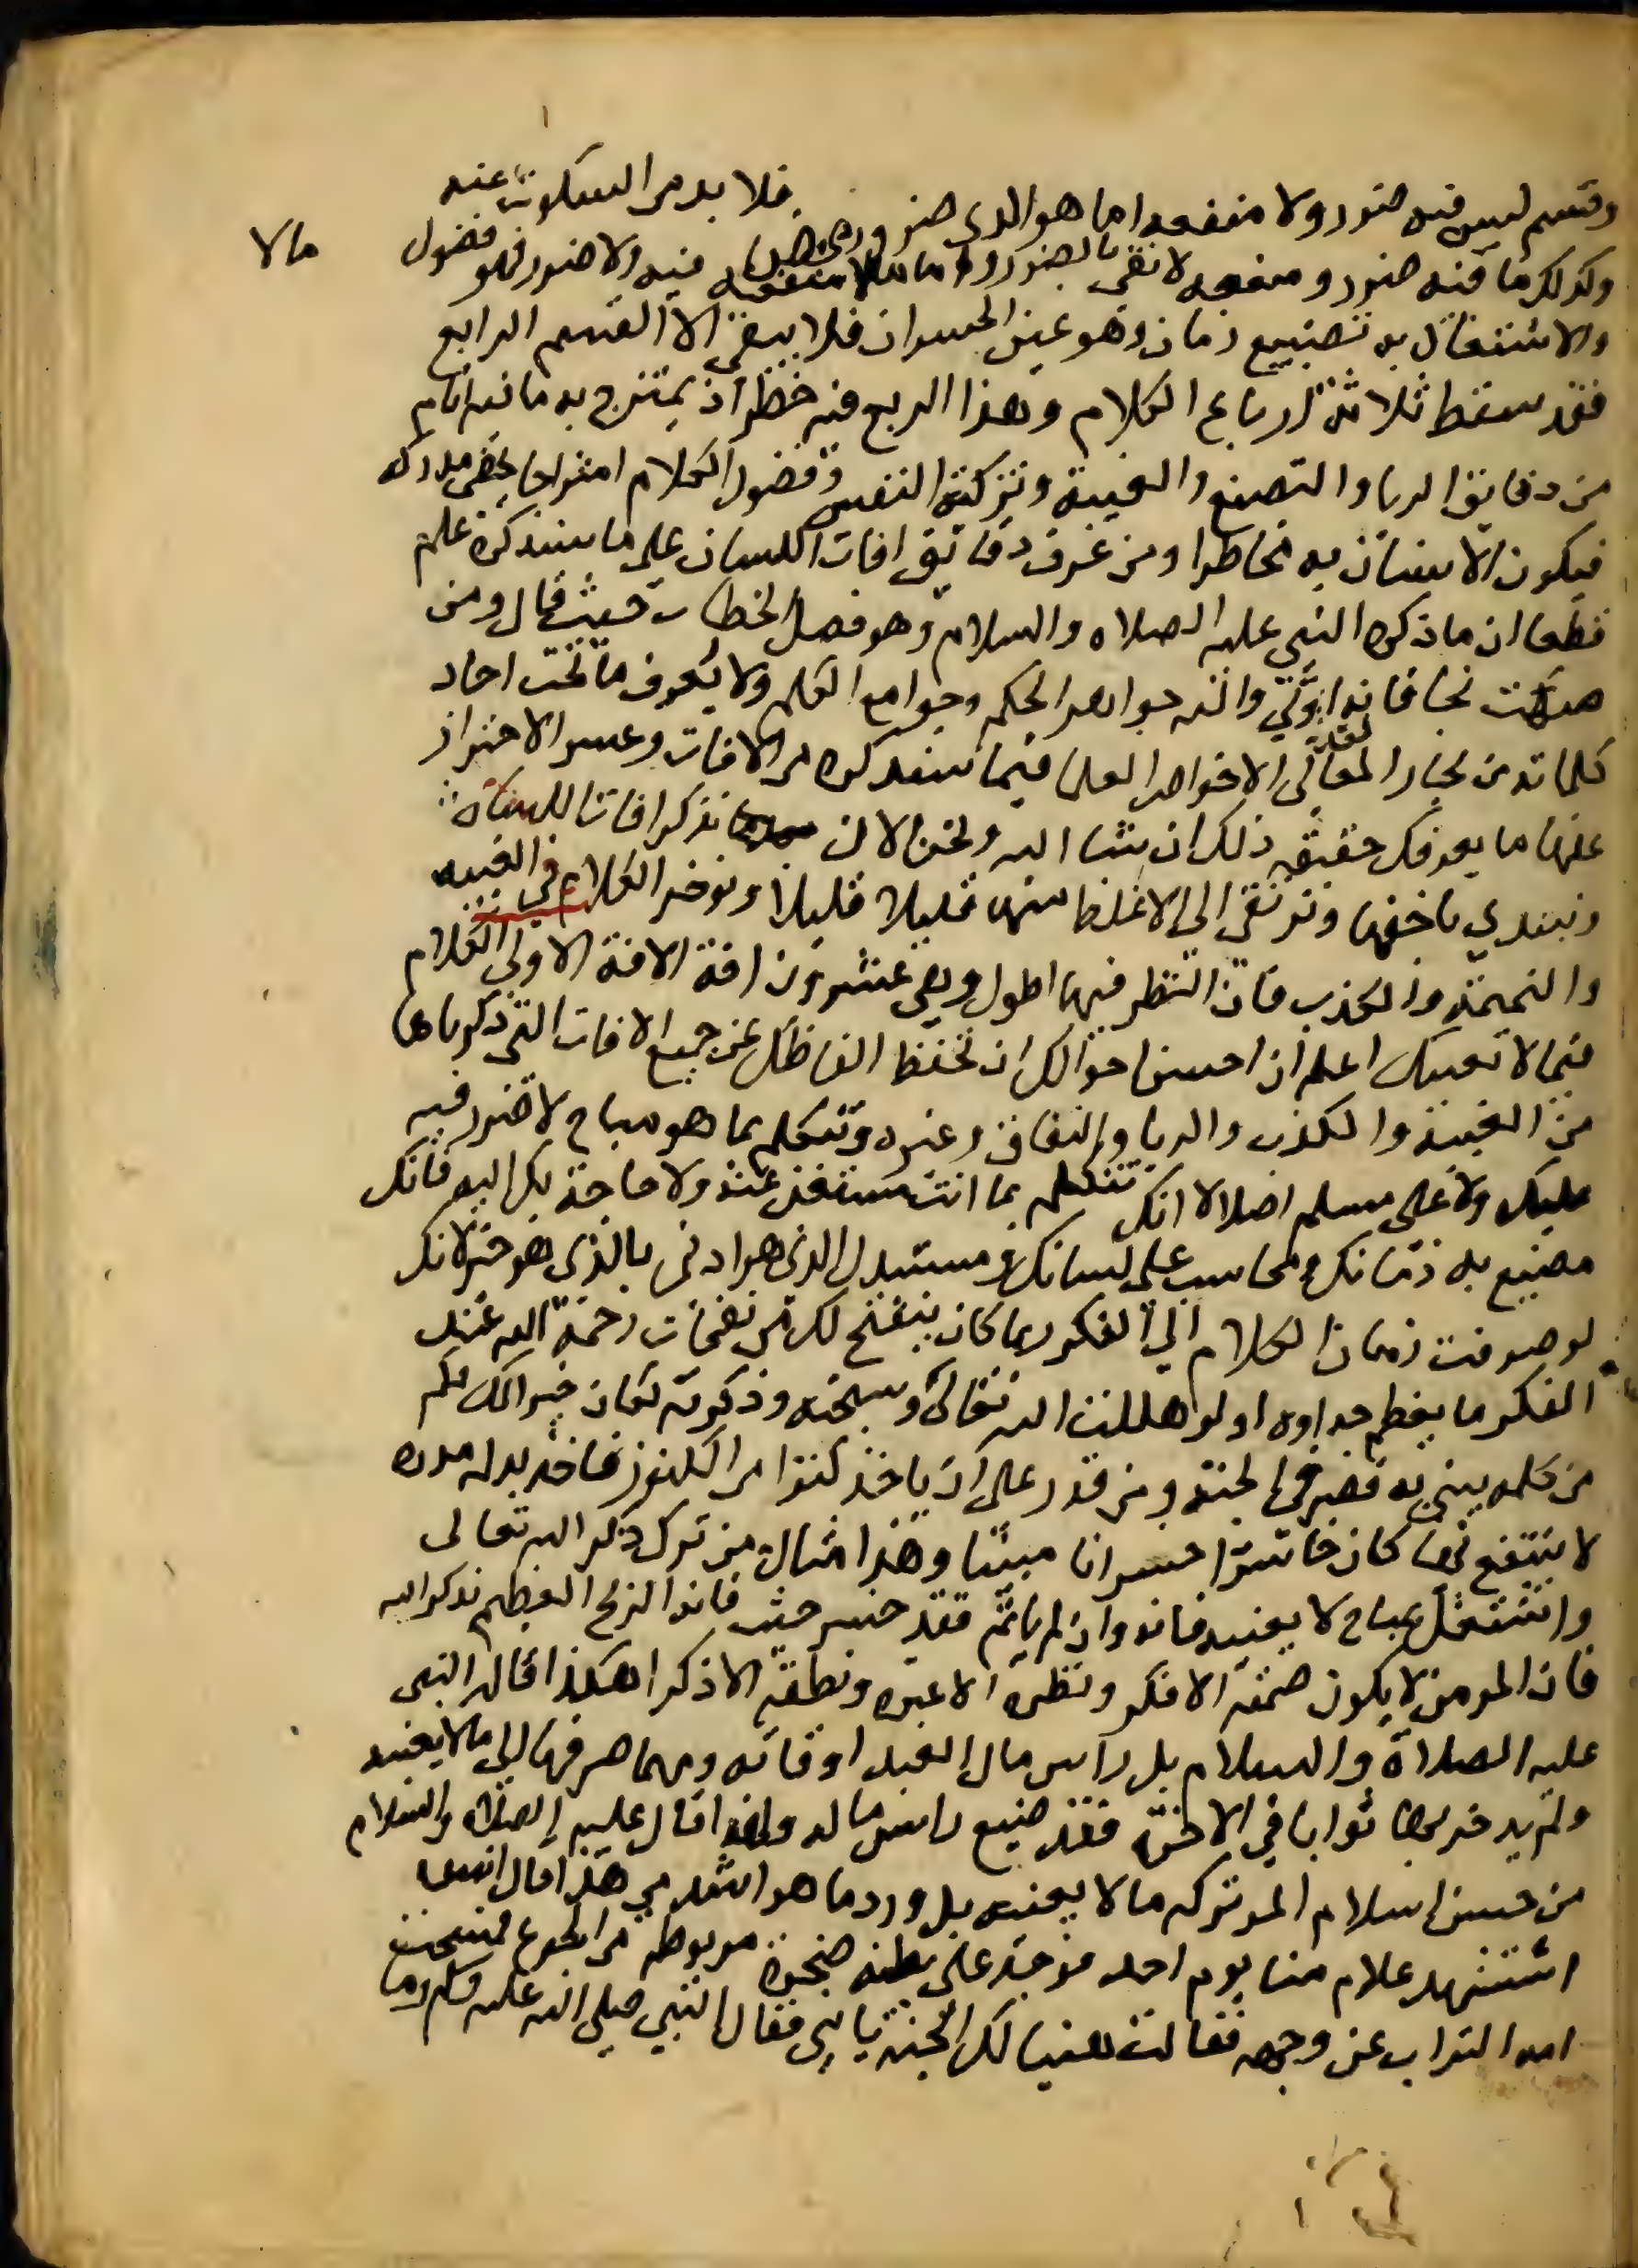 وقسم ليس فيه ضرر ولا منفعه اما هو الذي ضرر محض فلا بد من السكوت عنه
وكذلك ما فيه ضرر ومنفعه لا تفي بالضرر واما ما لا منفعه فيه ولا ضرر فهو فضول
مالا
والاشتغال به تضييع زمان وهو عين الخسران فلا يبقى الا القسم الرابع
فقد سقط ثلاثة ارباع الكلام وهذا الربع فيه خطر اذ يمتزج به ما فيه اثم
من دقايق الريا والتصنع والغيبة وتزكية النفس وفضول الكلام امتزاجا يخفى مدركه
فيكون الانسان به مخاطرا ومن عرف دقايق افات اللسان على ما سنذكره علم
قطعا ان ما ذكره النبي عليه الصلاه والسلام وهو فصل الخطاب حيث قال ومن
صمت نجا فانه اوتي والله جواهر الحكم وجوامع الكلم ولا يعرف ما تحت احاد
كلماته من بحار المعاني الا خواص العلما فيما سنذكره من الافات وعسر الاحتراز
عنها ما يعرفك حقيقه ذلك ان شا الله ونحن الان نذكر افات اللسان
ونبتدي باخفها ونترقى الى الاغلظ منها قليلا قليلا ونوخر الكلام في الغيبه
والنميمة والكذب فان النظر فيها اطول وهي عشرون افة الافة الاولى الكلام
فيما لا يعنيك اعلم ان احسن احوالك ان تحفظ الفاظك عن جميع الافات التي ذكرناها
من الغيبة والكذب والريا والنفاق وغيره وتتكلم بما هو مباح لا ضرر فيه
عليك ولا على مسلم اصلا الا انك تتكلم بما انت مستغن عنه ولا حاجة بك اليه فانك
مضيع به زمانك ومحاسب على لسانك ومستبدل الذي هو ادنى بالذي هو خير لانك
لو صرفت زمان الكلام الي الفكر ربما كان ينفتح لك من نفحات رحمة الله عند
الفكر ما يعظم جداوه ولو هللت الله تعالى وسبحته وذكرته لكان خيرا لك فكم
من كلمه يبنى به قصر في الجنه ومن قدر على ان ياخذ كنزا من الكنوز فاخذ بدله مدره
لا ينتفع بها كان خاسرا خسرانا مبينا وهذا مثال من ترك ذكر الله تعالى
واشتغل بمباح لا يعنيه فانه وان لم ياثم فقد خسر حيث فاته الربح العظيم بذكر الله
فان المومن لا يكون صمته الا فكر ونظره الا عبره ونطقه الا ذكرا هكذا قال النبي
عليه الصلاة والسلام بل راس مال العبد اوقاته ومهما صرفها الى ما لا يعنيه
ولم يدخر بها ثوابا في الاخره فقد ضيع راس ماله ولهذا قال عليه الصلاه والسلام
من حسن اسلام المر تركه ما لا يعنيه بل ورد ما هو اشد من هذا قال انس
استشهد غلام منا يوم احد فوجد على بطنه صخرة مربوطه من الجوع فمسحت
امه التراب عن وجهه فقالت هنيا لك الجنه يا بني فقال النبي صلى الله عليه وسلم وما